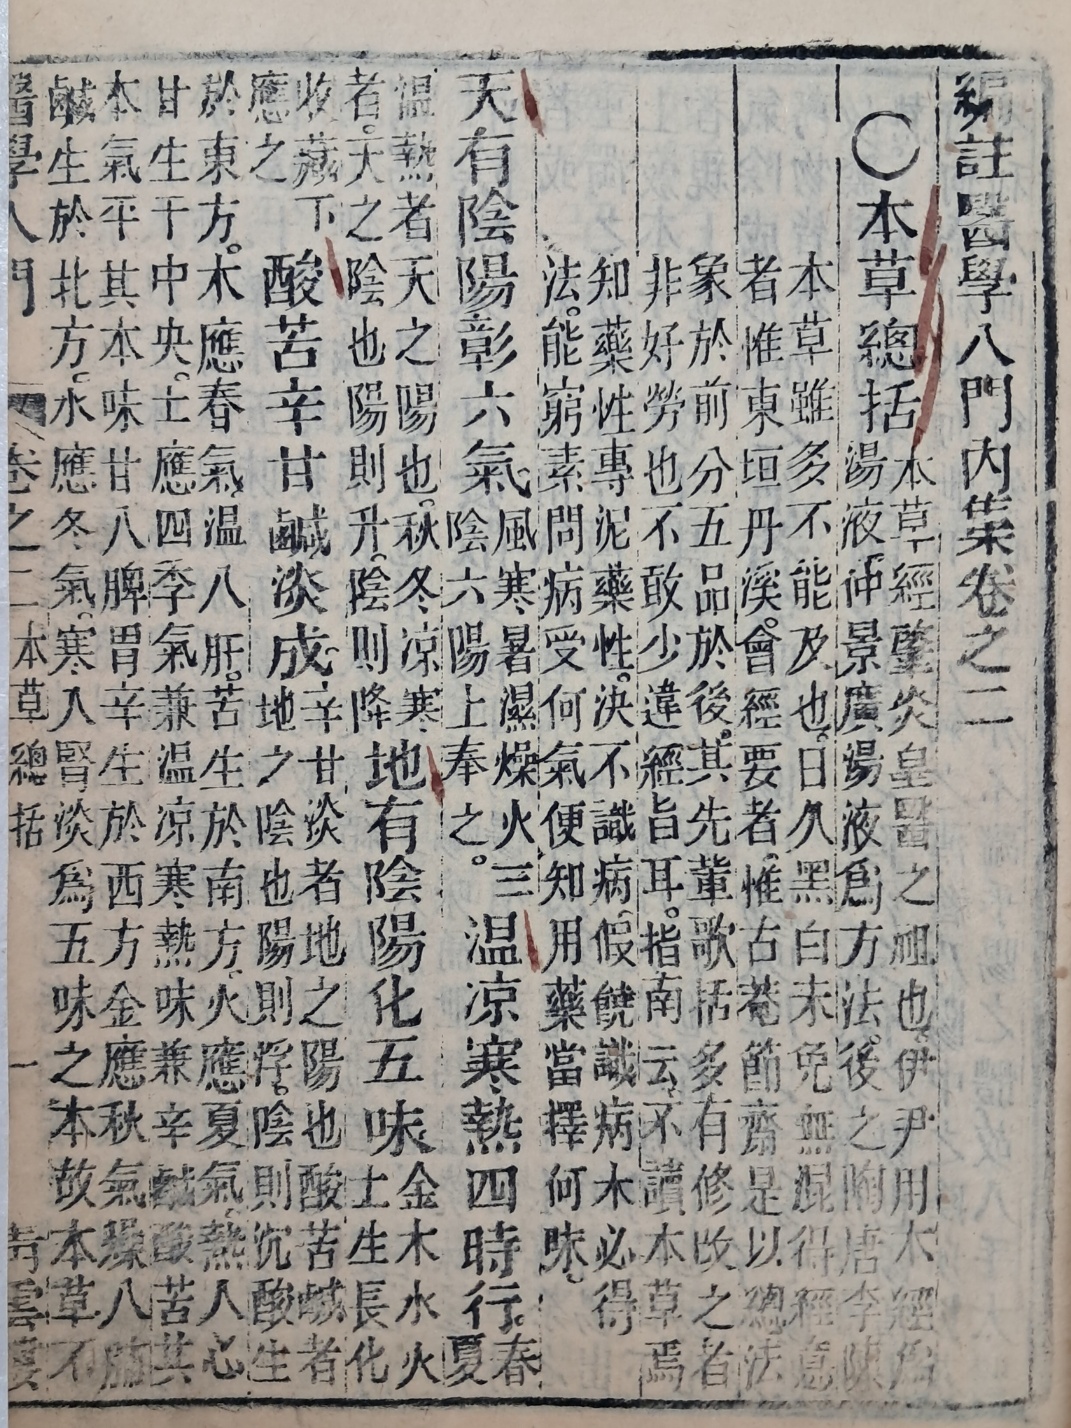 編註醫學入門內集卷之二
〇本草總括
本草經肇炎皇醫之祖也。伊尹用本經爲
湯液。仲景廣湯液爲方法。後之陶唐李陳
本草雖多不能及也。日久黑白未免無混得經意
者惟東垣丹溪。會經要者。惟古菴節齋是以總法
象於前分五品於後。其先輩歌括多有修改之者
非好勞也不敢少違經旨耳。指南云。不讀本草焉
知藥性專泥藥性。決不識病。假饒識病未必得
法。能窮素問病受何氣便知用藥當擇何味。
天有陰陽彰六氣。
風寒暑濕燥火三
陰六陽上奉之。
温凉寒熱四時行。
春
夏
温熱者天之陽也。秋冬凉寒
者。天之陰也陽則升。陰則降
地有陰陽化五味
金木水火
土生長化
收藏下
應之
酸苦辛甘鹹淡成
辛甘淡者地之陽也酸苦鹹者
地之陰也陽則浮。陰則沉酸生
於東方。木應春氣。温入肝。苦生於南方。火應夏氣。熱入心
甘生于中央。土應四季氣兼温凉寒熱味兼辛鹹酸苦其
本氣平其本味甘入脾胃辛生於西方金應秋氣燥入肺
鹹生於北方。水應冬氣。寒入腎淡爲五味之本故本草不
醫學入門 卷之二本草總括 一 青雲樓